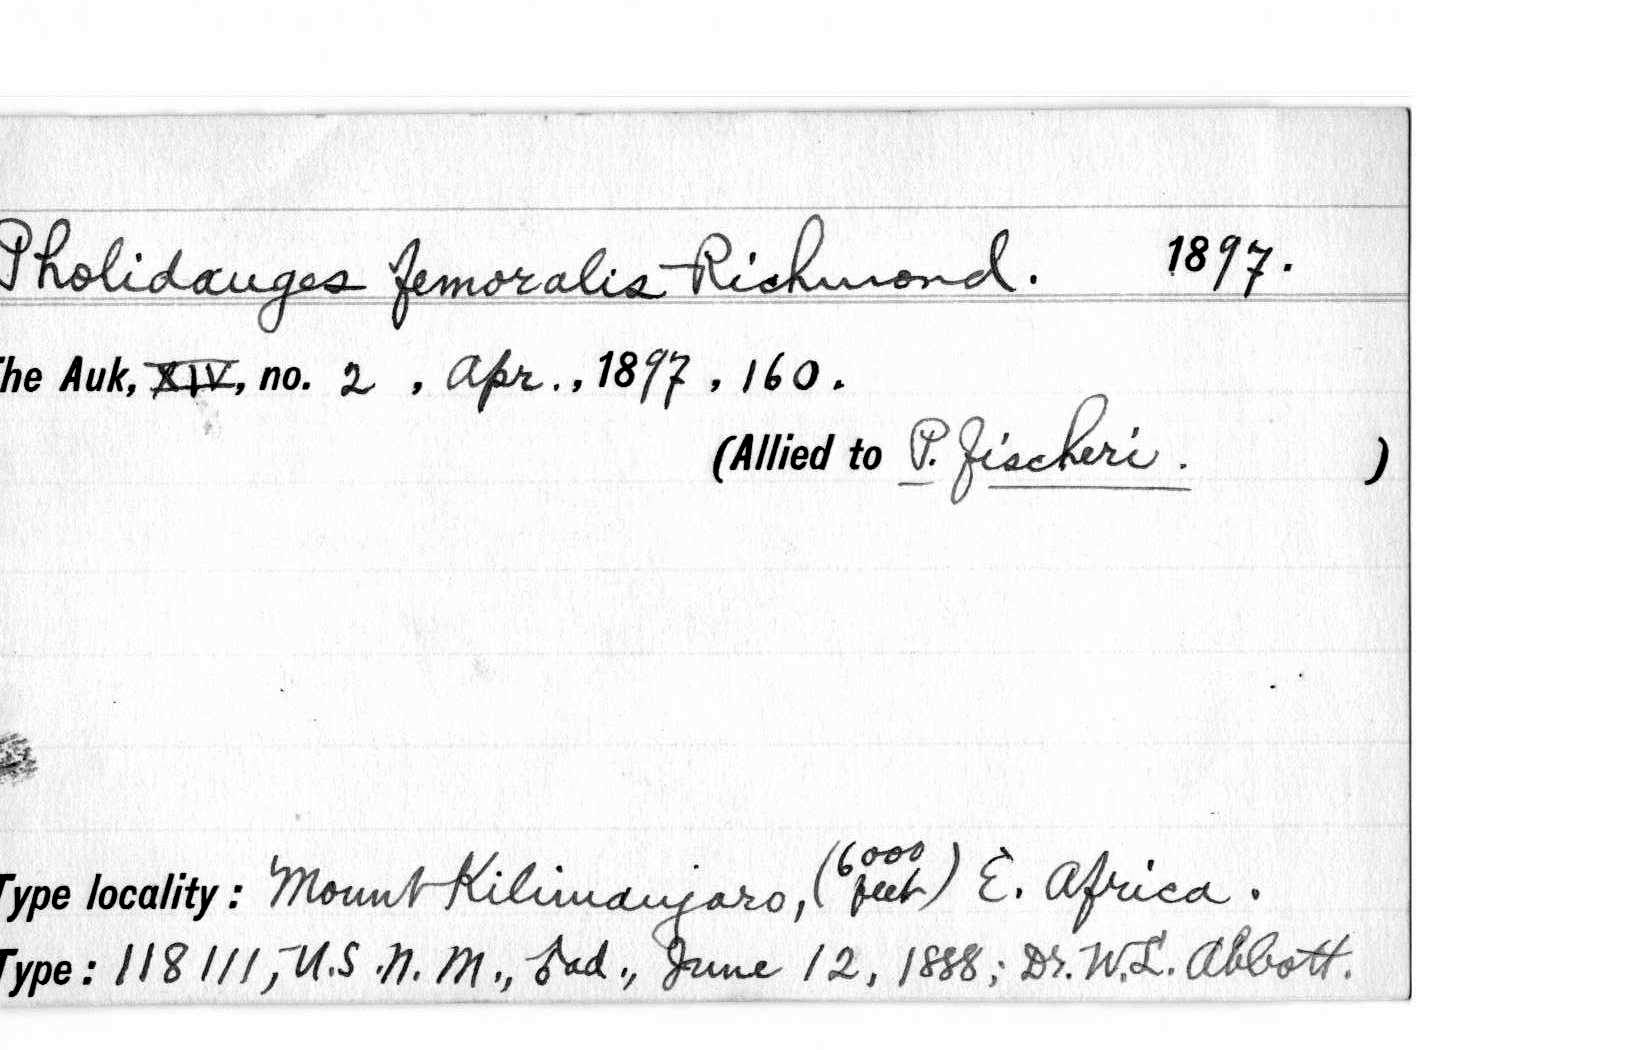 Pholidauges femoralis Richmond. 1897.
The Auk, XIV, no. 2 , Apr., 1897, 160.
(Allied to P. fischeri. )
Type locality: Mount Kilimanjaro, (6000 feet) E. Africa.
Type: 118111, U.S.N.M., ♂ad., June 12, 1888; Dr. W.L. Abbott.